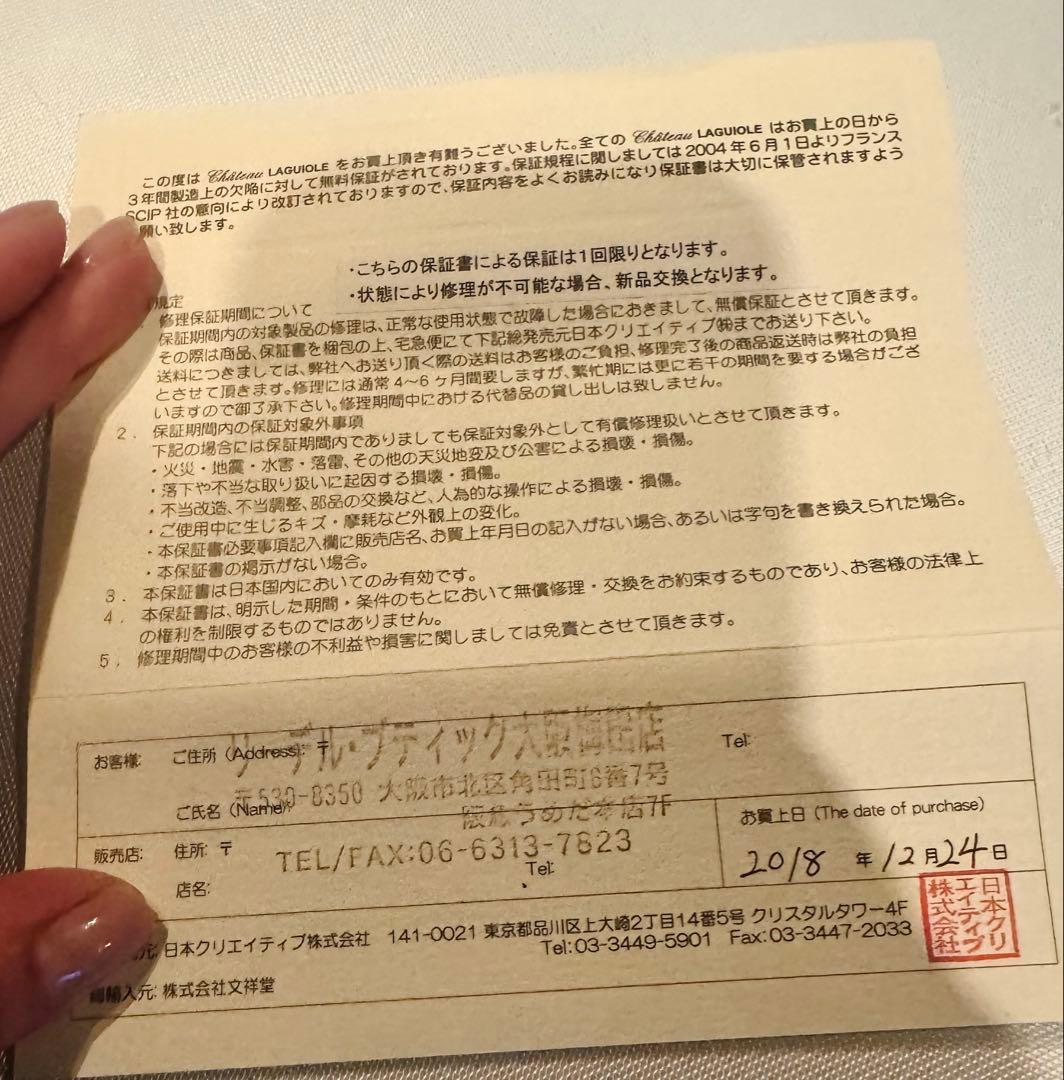 この度は Château LAGUIOLE をお買上頂き有難うございました。全ての Château LAGUIOLE はお買上の日から
3年間製造上の欠陥に対して無料保証がされております。保証規程に関しましては2004年6月1日よりフランス
SCIP 社の意向により改訂されておりますので、保証内容をよくお読みになり保証書は大切に保管されますよう
願い致します。
・こちらの保証書による保証は1回限りとなります。
・状態により修理が不可能な場合、新品交換となります。
規定
修理保証期間について
保証期間内の対象製品の修理は、正常な使用状態で故障した場合におきまして、無償保証とさせて頂きます。
その際は商品、保証書を梱包の上、宅急便にて下記総発売元日本クリエイティブ㈱までお送り下さい。
送料につきましては、弊社へお送り頂く際の送料はお客様のご負担、修理完了後の商品返送時は弊社の負担
とさせて頂きます。修理には通常4〜6ヶ月間要しますが、繁忙期には更に若干の期間を要する場合がござ
いますので御了承下さい。修理期間中における代替品の貸し出しは致しません。
2. 保証期間内の保証対象外事項
下記の場合には保証期間内でありましても保証対象外として有償修理扱いとさせて頂きます。
・火災・地震・水害・落雷、その他の天災地変及び公害による損壊・損傷。
・落下や不当な取り扱いに起因する損壊・損傷。
・不当改造、不当調整、部品の交換など、人為的な操作による損壊・損傷。
・ご使用中に生じるキズ・摩耗など外観上の変化。
・本保証書必要事項記入欄に販売店名、お買上年月日の記入がない場合、あるいは字句を書き換えられた場合。
・本保証書の掲示がない場合。
3. 本保証書は日本国内においてのみ有効です。
4. 本保証書は、明示した期間・条件のもとにおいて無償修理・交換をお約束するものであり、お客様の法律上
の権利を制限するものではありません。
5. 修理期間中のお客様の不利益や損害に関しましては免責とさせて頂きます。
リーデル・ブティック大阪梅田店
お客様: ご住所 (Address): 〒 Tel:
〒530-8350 大阪市北区角田町8番7号
ご氏名 (Name):
阪急うめだ本店7F
お買上日 (The date of purchase)
販売店: 住所: 〒
TEL/FAX:06-6313-7823
Tel:
2018 年 12 月 24 日
店名:
元: 日本クリエイティブ株式会社 141-0021 東京都品川区上大崎2丁目14番5号 クリスタルタワー4F
Tel:03-3449-5901 Fax:03-3447-2033
日本クリエイティブ株式会社
輸入元: 株式会社文祥堂